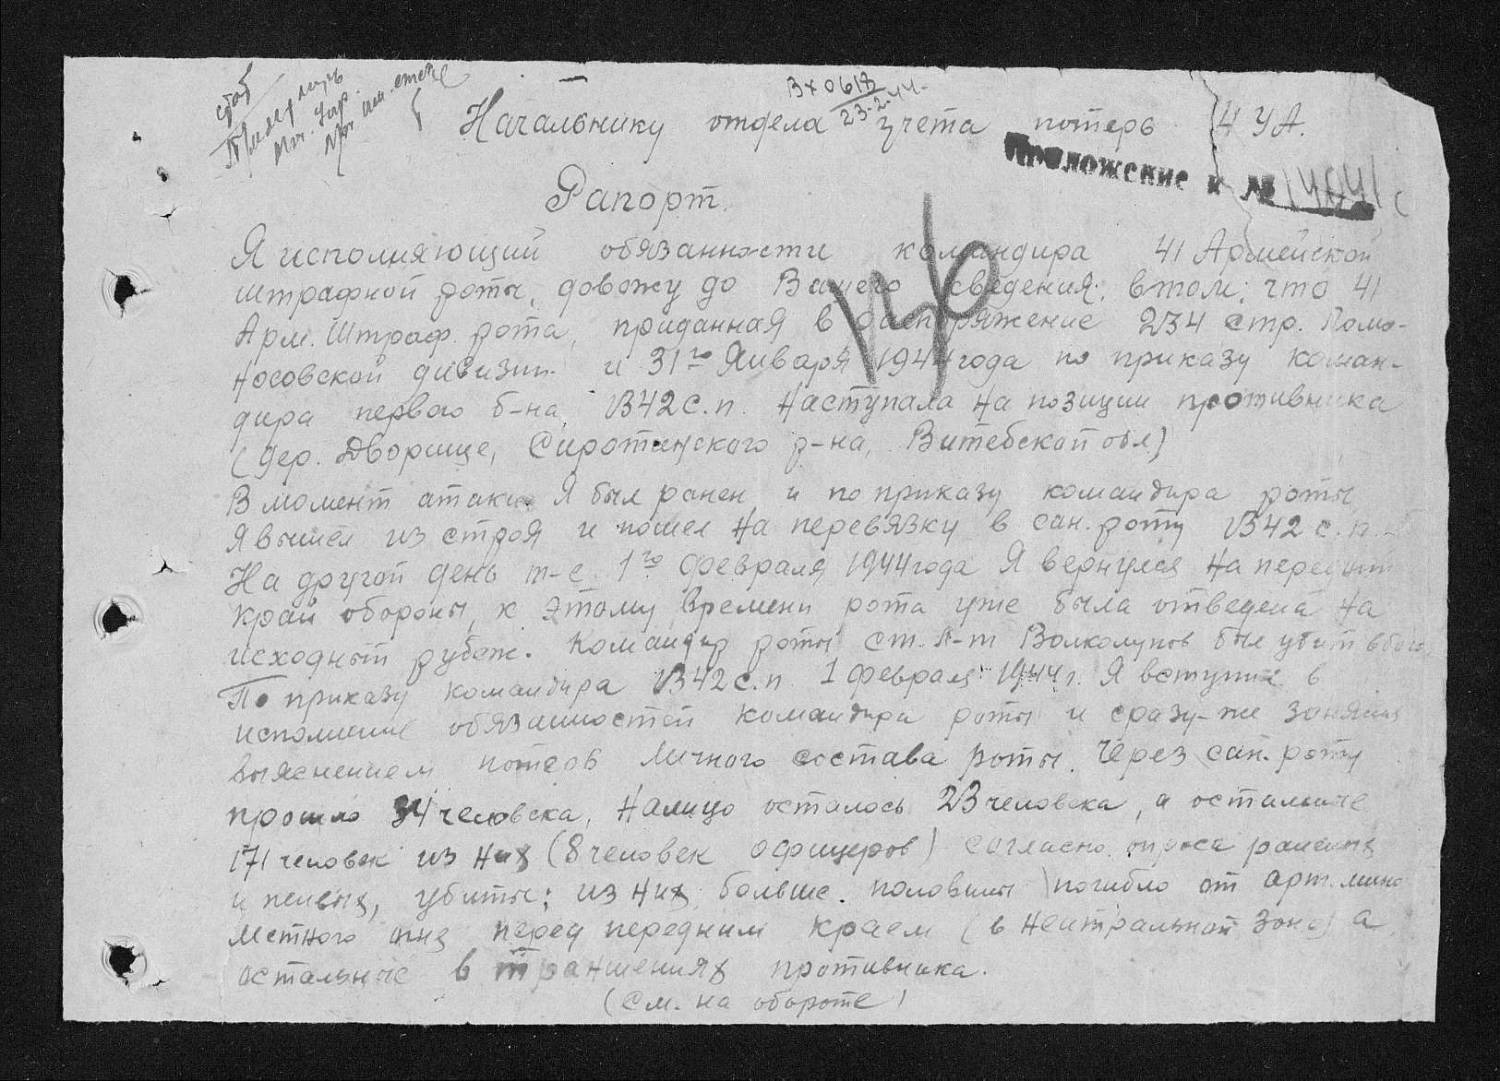 Вх 0617
23-2-44
Начальнику отдела учета потерь 4 УА.
Приложение к № с
Рапорт.
Я исполняющий обязанности командира 41 Армейской
штрафной роты, довожу до Вашего сведения; в том; что 41
Арм. Штраф. рота, приданная в распоряжение 234 стр. Ломо-
носовской дивизии и 31го Января 1944 года по приказу коман-
дира первого б-на, 1342 с.п. наступала на позиции противника
(дер. Дворище, Сиротинского р-на, Витебской обл)
В момент атаки Я был ранен и по приказу командира роты
Я вышел из строя и пошел на перевязку в сан. роту 1342 с.п.
На другой день т-е 1го февраля 1944 года Я вернулся на передний
край обороны, к этому времени рота уже была отведена на
исходный рубеж. Командир роты ст. л-т был убит в бою.
По приказу командира 1342 с.п. 1 февраля 1944 г. Я вступил в
исполнение обязанностей командира роты и сразу-же занялся
выяснением потерь личного состава роты. Через сан. роту
прошло 34 человека, налицо осталось 23 человека, а остальные
171 человек из них (8 человек офицеров) согласно опроса раненых
и целых, убиты; из них больше половины погибло от арт. мино
метного огня перед передним краем (в нейтральной зоне) а
остальные в траншениях противника.
(см. на обороте)